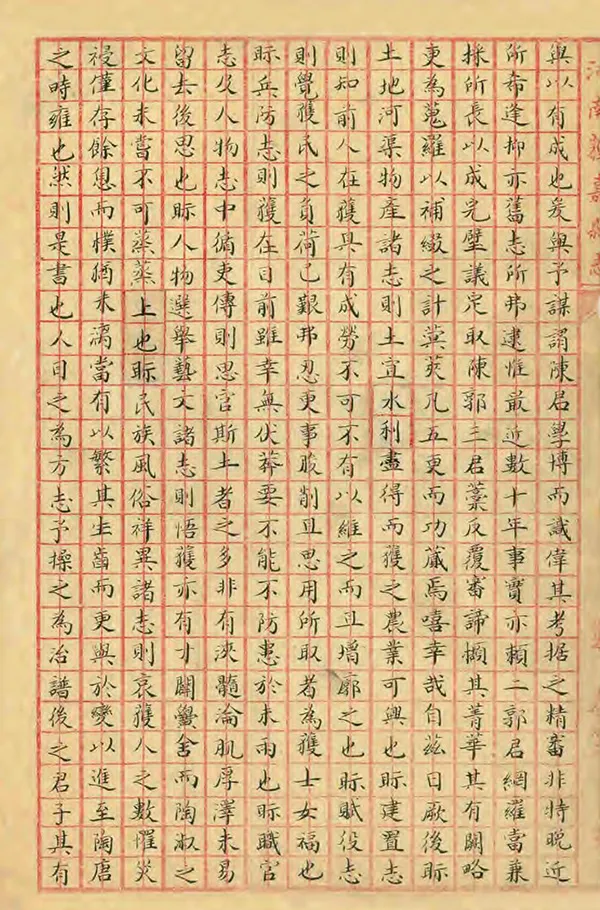 河南獲嘉縣志
與以有成也爰與予謀謂陳君學博而識偉其考据之精審非特晚近
所希逢抑亦舊志所弗逮惟最近數十年事實亦賴二郭君網羅當兼
採所長以成完璧議定取陳郭三君藁反覆審諦擷其菁華其有闕略
更為蒐羅以補綴之計蓂莢凡五更而功蕆焉嘻幸哉自茲日厥後眎
土地河渠物產諸志則土宜水利盡得而獲之農業可興也眎建置志
則知前人在獲具有成勞不可不有以維之而且增廓之也眎賦役志
則覺獲民之負荷已艱弗忍更事朘削且思用所取者為獲士女福也
眎兵防志則獲在目前雖幸無伏莽要不能不防患於未雨也眎職官
志及人物志中循吏傳則思官斯土者之多非有浹髓淪肌厚澤未易
留去後思也眎人物選舉藝文諸志則悟獲亦有才闢黌舍而陶淑之
文化未嘗不可蒸蒸上也眎民族風俗祥異諸志則哀獲人之數罹災
祲僅存餘息而樸猶未漓當有以繁其生齒而更與於變以進至陶唐
之時雍也然則是書也人目之為方志予操之為治譜後之君子其有